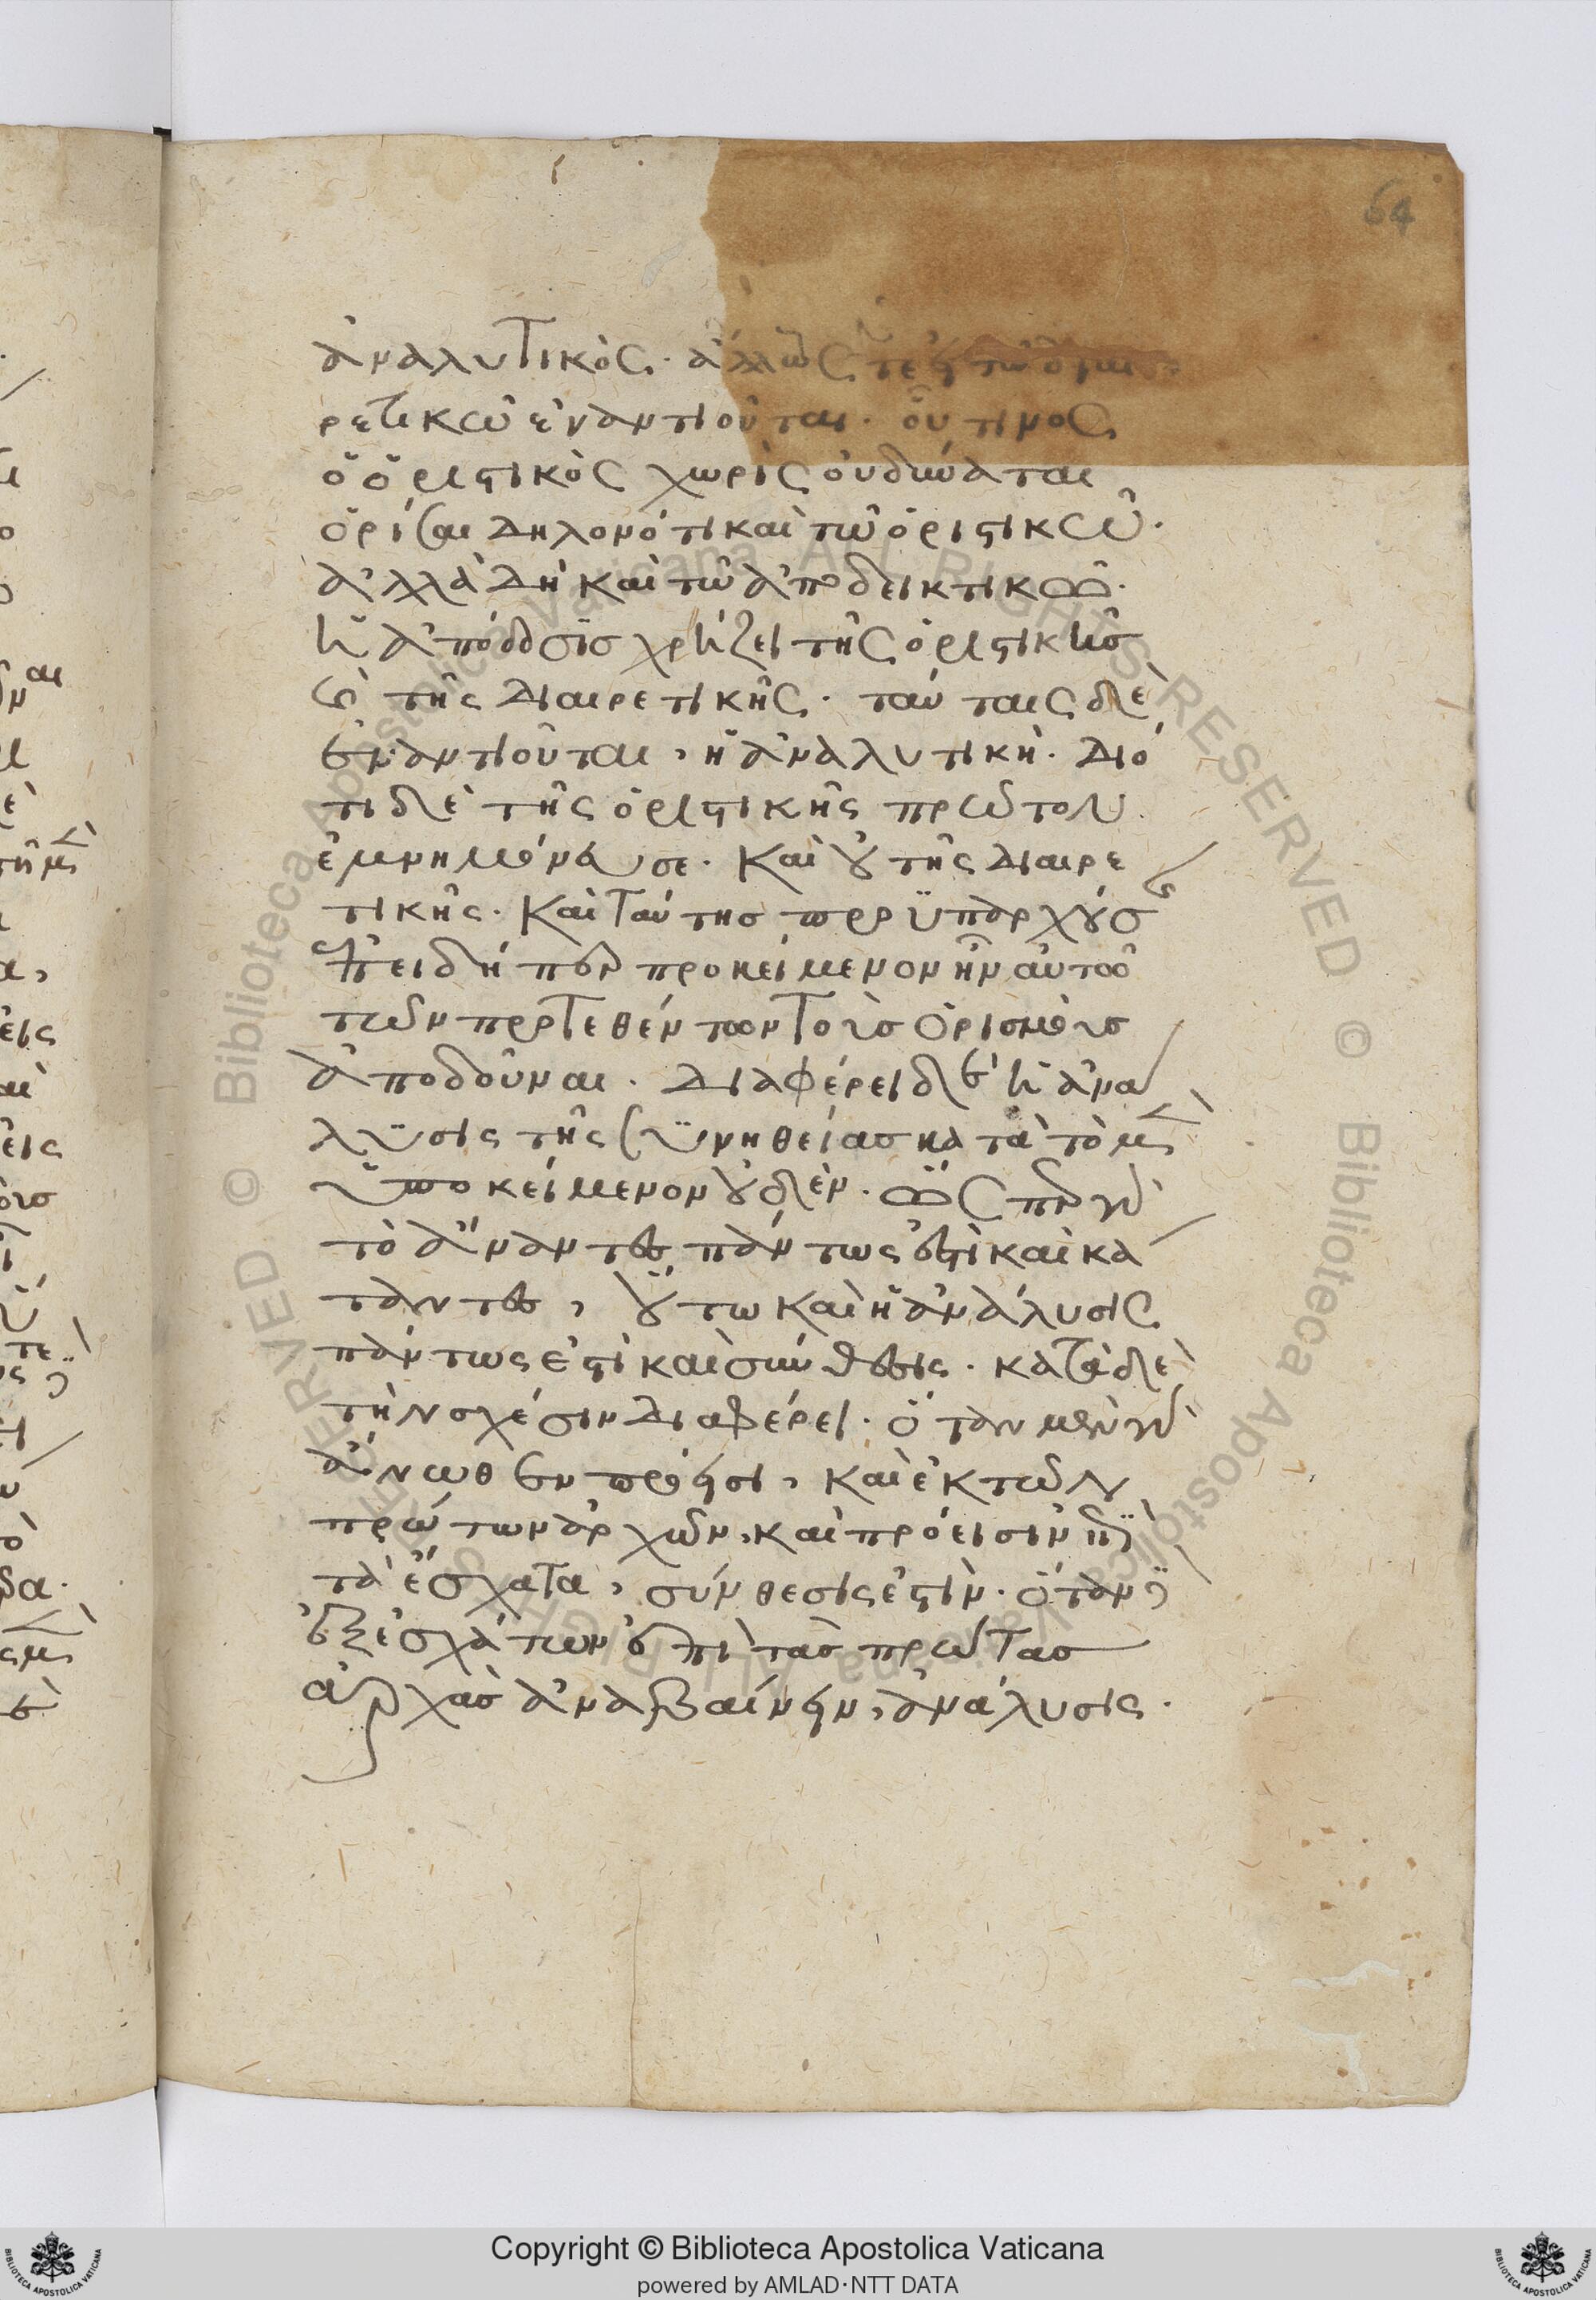 64
ἀναλυτικὸς. ἄλλως τε εἰ τῶ διαι
ρετικῶ ἐναντιοῦται. οὗτινος
ὁ ὁριστικὸς χωρὶς οὐ δύναται
ὁρίσαι δηλονότι καὶ τῶ ὁριστικῶ.
ἀλλὰ δὴ καὶ τῶ ἀποδεικτικῶ.
ἡ ἀπόδοσις χρήζει τῆς ὁριστικῆσ
ἢ τῆς διαιρετικῆς. ταύταις δὲ
ἐναντιοῦται, ἡ ἀναλυτικὴ. διό
τι δὲ τῆς ὁριστικῆς πρῶτον
ἐμνημόνευσε. καὶ οὐ τῆς διαιρε
τικῆς. καὶ ταύτησ προϋπαρχούσησ
ἐπειδήπερ προκείμενον ἦν αὐτῶ
τῶν προτεθέντων τοὺσ ὁρισμοὺσ
ἀποδοῦναι. διαφέρει δὲ ἡ ἀνα
λυσις τῆς συνηθείασ κατὰ τὸ μὲν
ὑποκείμενον οὐδὲν. ὥσπερ γὰρ
τὸ ἄναντες πάντως ἐστὶ καὶ κά
ταντες, οὕτω καὶ ἡ ἀνάλυσις
πάντως ἐστὶ καὶ σύνθεσις. κατὰ δὲ
τὴν σχέσιν διαφέρει. ὅταν μὲν γὰρ
ἄνωθεν πρόεισι, καὶ ἐκ τῶν
πρώτων ἀρχῶν, καὶ πρόεισιν ἐπὶ
τὰ ἔσχατα, σύνθεσις ἐστὶν. ὅταν δὲ
ἐξ ἐσχάτων ἐπὶ τὰσ πρώτασ
ἀρχὰσ ἀναβαίνειν, ἀνάλυσις.
Copyright © Biblioteca Apostolica Vaticana
powered by AMLAD·NTT DATA